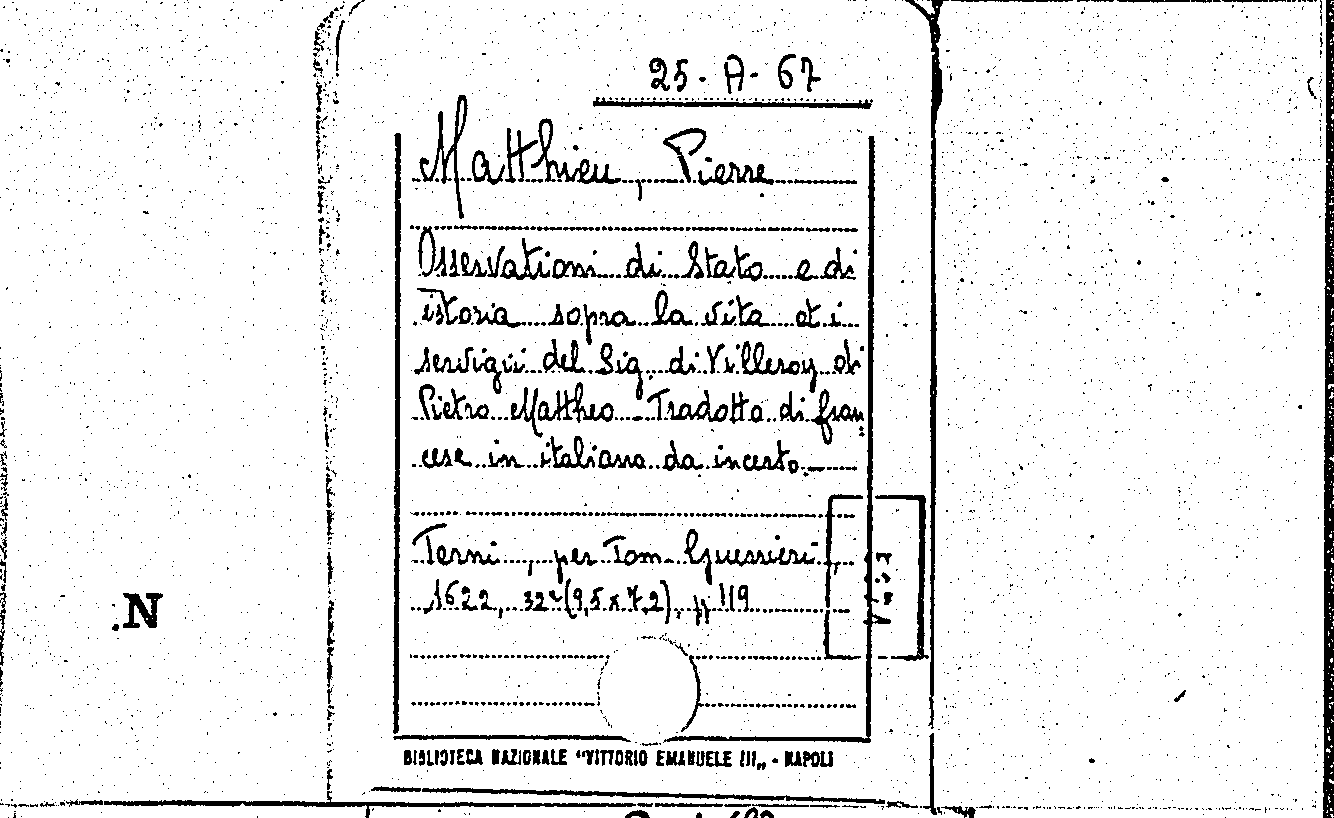 25-A-67
Matthieu, Pierre
Osservationi di Stato e di
istoria sopra la vita et i
servigii del Sig. di Villeroy di
Pietro Mattheo Tradotta di fran
cese in italiano da incerto.
Terni, per Tom. Guerrieri,
1622, 32° (9,5 x 7,2), pp 119
.N
BIBLIOTECA NAZIONALE "VITTORIO EMANUELE III„ - NAPOLI